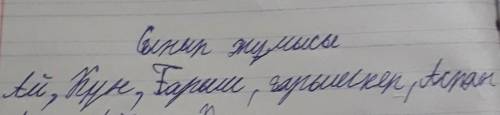 Сынып жұмысы
Ай, Күн, Ғарыш, ғарышкер, Аспан